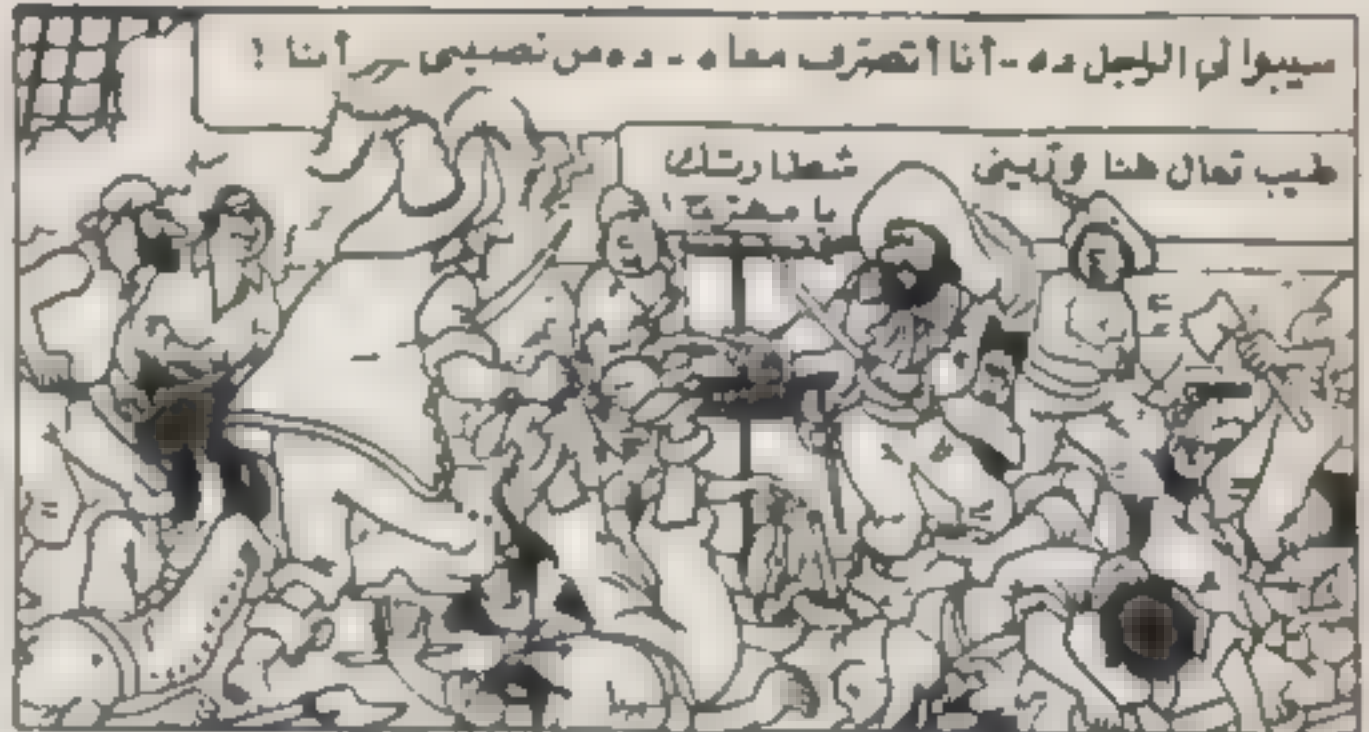 سيبوا لي الراجل ده - أنا أتصرف معاه - ده من نصيبى أنا !
طيب تعال هنا وريني شطارتك
يا